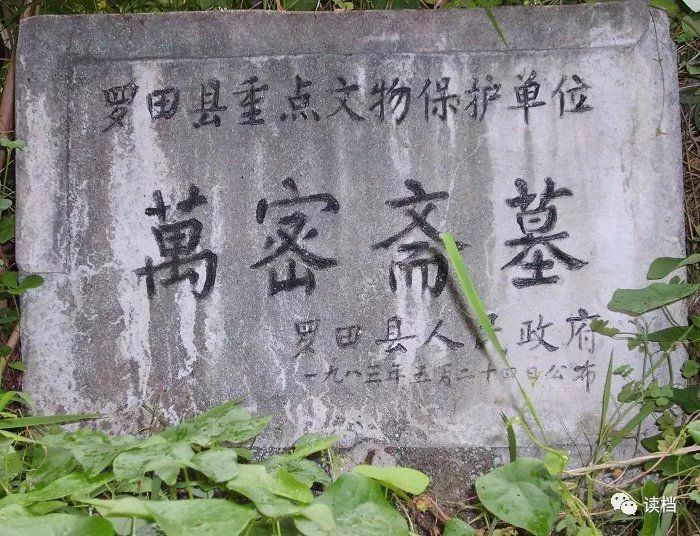 罗田县重点文物保护单位
萬密斋墓
罗田县人民政府
一九八三年五月二十四日公布
读档